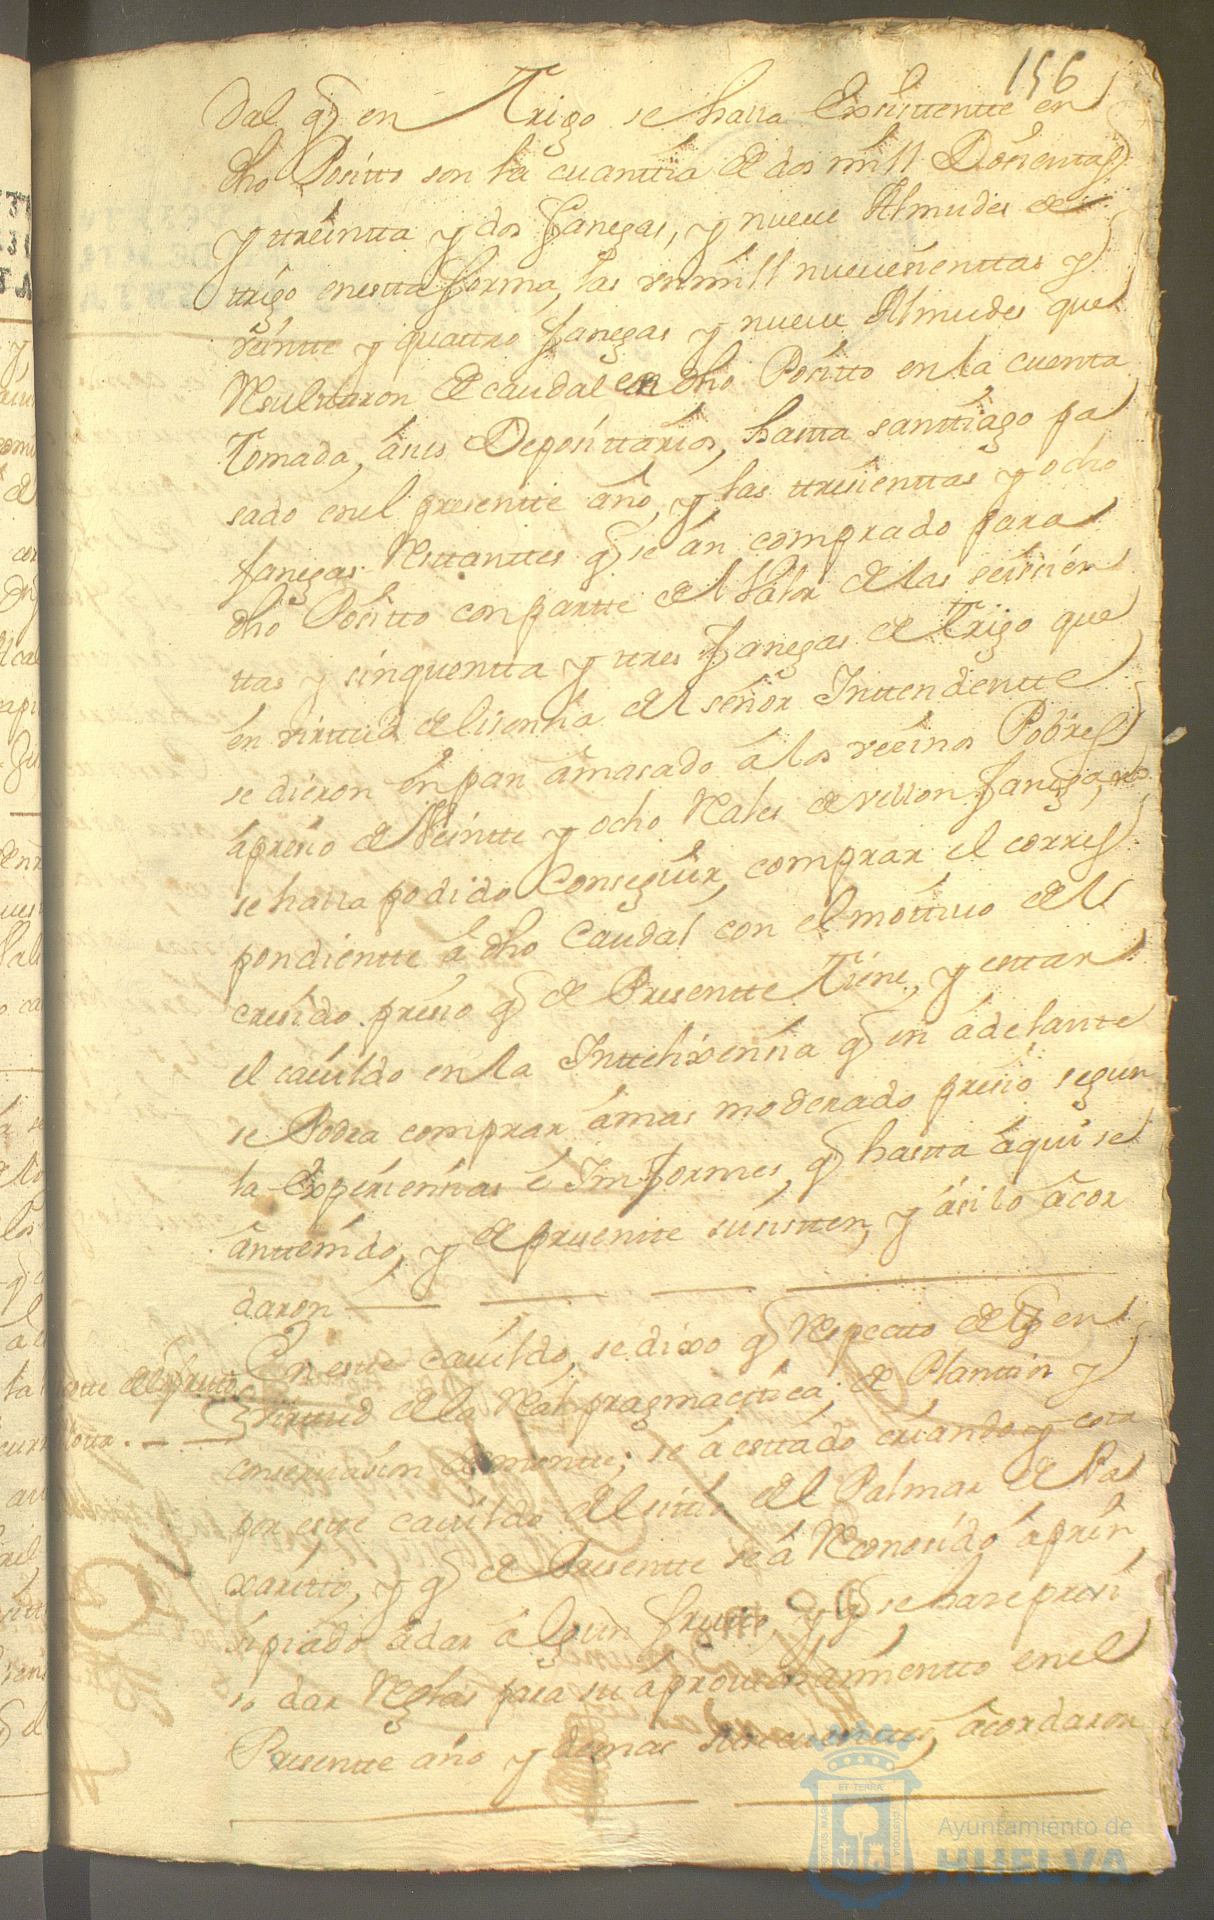 156
dal q̃ en Trigo se halla Exsistentte en
dho Positto son la cuanttia de dos mill Dosienttas
y treintta y dos fanegas, y nueve Almudes de
trigo en estta forma, las un mill nuevesienttas y
veintte y quattro fanegas y nueve Almudes que
Resultaron de caudal en dho Positto en la cuenta
Tomada, a sus Deposittarios, hasta santtiago pa
sado en el presentte año, y las ttresienttas y ocho
fanegas Restanttes q̃ se an comprado para
dho Positto con partte del Valor de las seissien
ttas y sinquentta y tres fanegas de Trigo que
en virttud de lisensia del señor Inttendentte
se dieron en pan amasado a los vecinos Pobres
a presio de Veintte y ocho Rales de vellon fanega, no
se halla podido Conseguir, comprar el corres
pondientte a dho Caudal con el mottivo del
cresido presio q̃ de Presentte Tiene, y esttar
el cavildo en la Inttelixensia q̃ en adelante
se Podra comprar a mas moderado presio segun
la Experiensias e Informes, q̃ hastta aqui se
an ttenido, y de presentte susistten, y asi lo acor
daron
En estte cavildo, se dixo q̃ Respecto de q̃ en
virttud de la Real pragmacttica, de Planttin y
conservasion de montte; se a esttado criando y
por estte cavildo el sittio del Palmar de Pa
xaritto, y q̃ de Presentte se a Reconosido a prin
sipiado a dar algun frutto, y q̃ se hase presi
so dar Reglas para su aprovechamientto en el
Presentte año y demas subcecuenttes, acordaron
del frutto
ET TERRA
Ayuntamiento de
HUELVA